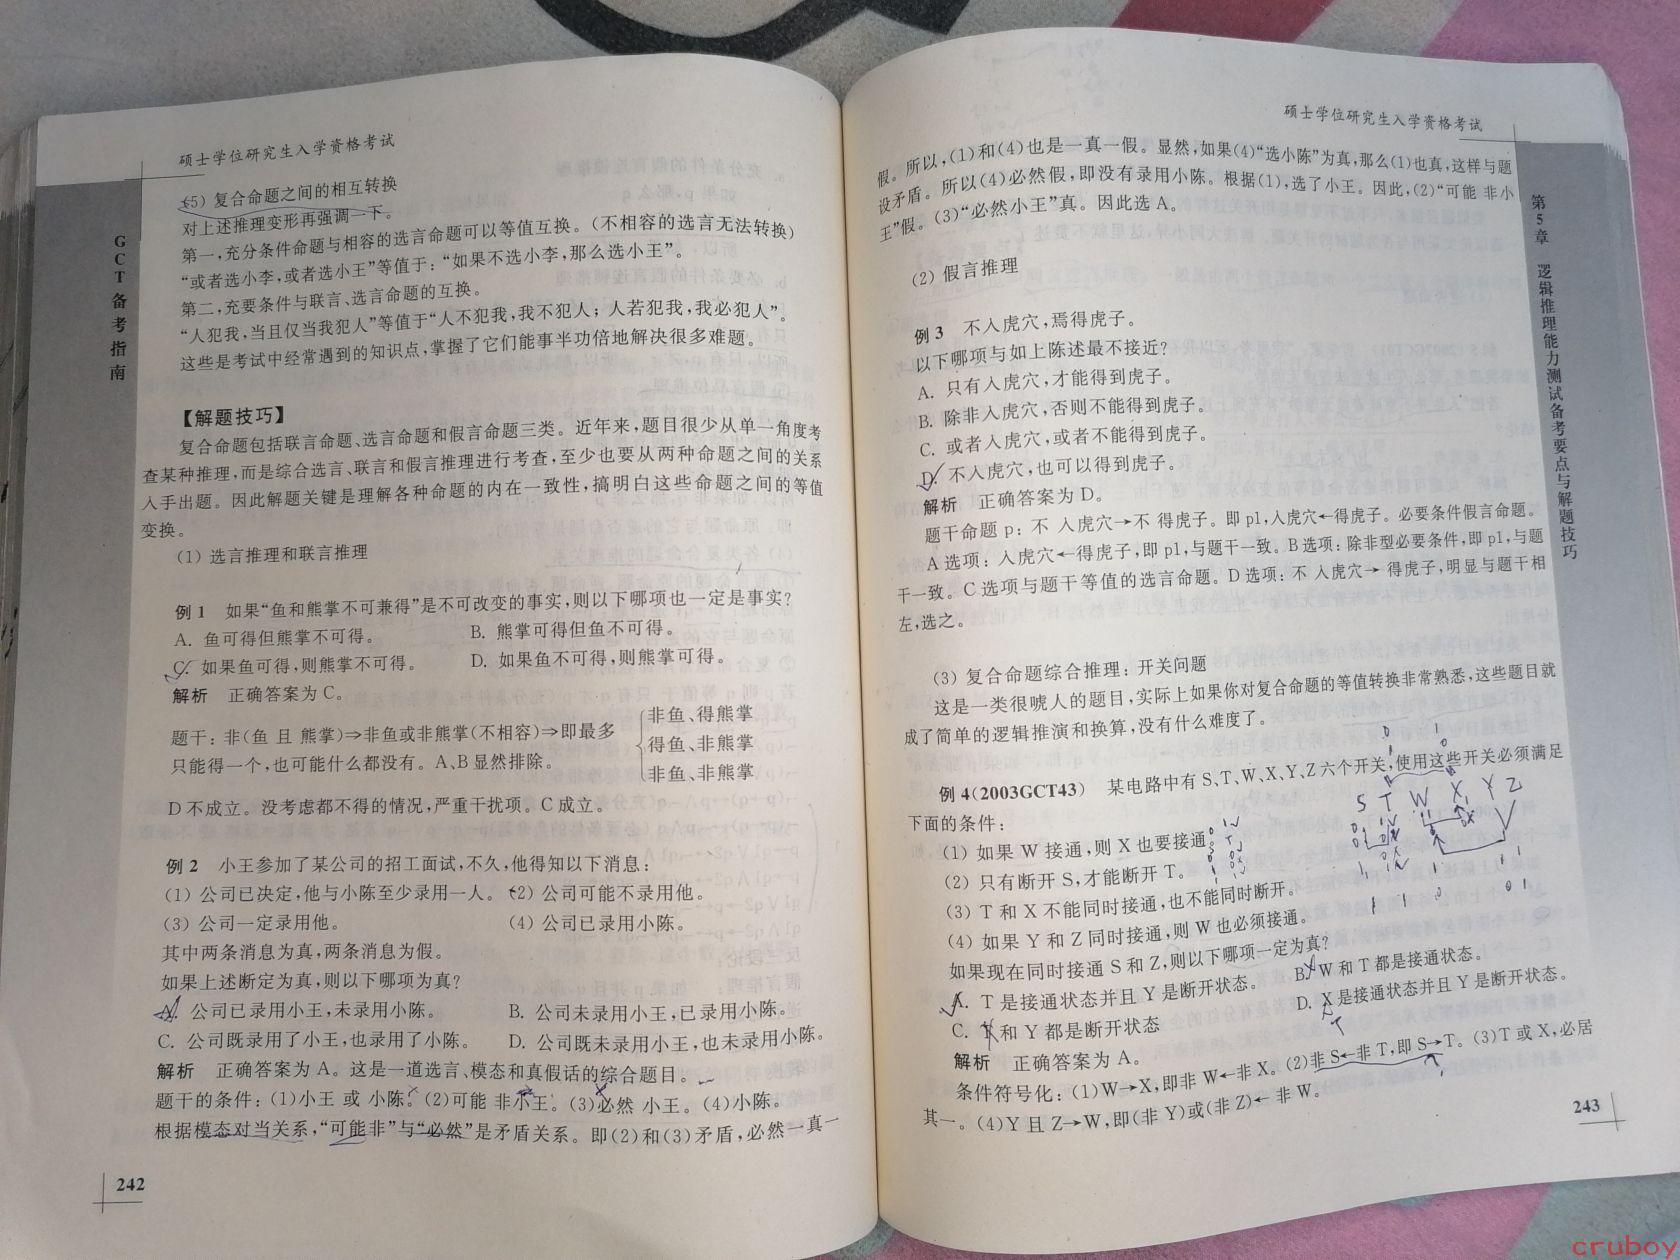 硕士学位研究生入学资格考试
GCT备考指南
(5) 复合命题之间的相互转换
对上述推理变形再强调一下。
第一,充分条件命题与相容的选言命题可以等值互换。(不相容的选言无法转换)
“或者选小李,或者选小王”等值于:“如果不选小李,那么选小王”。
第二,充要条件与联言、选言命题的互换。
“人犯我,当且仅当我犯人”等值于“人不犯我,我不犯人;人若犯我,我必犯人”。
这些是考试中经常遇到的知识点,掌握了它们能事半功倍地解决很多难题。
【解题技巧】
复合命题包括联言命题、选言命题和假言命题三类。近年来,题目很少从单一角度考
查某种推理,而是综合选言、联言和假言推理进行考查,至少也要从两种命题之间的关系
入手出题。因此解题关键是理解各种命题的内在一致性,搞明白这些命题之间的等值
变换。
(1) 选言推理和联言推理
例 1 如果“鱼和熊掌不可兼得”是不可改变的事实,则以下哪项也一定是事实?
A. 鱼可得但熊掌不可得。 B. 熊掌可得但鱼不可得。
C. 如果鱼可得,则熊掌不可得。 D. 如果鱼不可得,则熊掌可得。
解析 正确答案为 C。
题干:非(鱼 且 熊掌)⇒非鱼或非熊掌(不相容)⇒即最多
只能得一个,也可能什么都没有。A、B显然排除。
非鱼、得熊掌
得鱼、非熊掌
非鱼、非熊掌
D 不成立。没考虑都不得的情况,严重干扰项。C 成立。
例 2 小王参加了某公司的招工面试,不久,他得知以下消息:
(1) 公司已决定,他与小陈至少录用一人。 (2) 公司可能不录用他。
(3) 公司一定录用他。 (4) 公司已录用小陈。
其中两条消息为真,两条消息为假。
如果上述断定为真,则以下哪项为真?
A. 公司已录用小王,未录用小陈。 B. 公司未录用小王,已录用小陈。
C. 公司既录用了小王,也录用了小陈。 D. 公司既未录用小王,也未录用小陈。
解析 正确答案为 A。这是一道选言、模态和真假话的综合题目。
题干的条件:(1)小王 或 小陈。(2)可能 非小王。(3)必然 小王。(4)小陈。
根据模态对当关系,“可能非”与“必然”是矛盾关系。即(2)和(3)矛盾,必然一真一
242
硕士学位研究生入学资格考试
第5章 逻辑推理能力测试备考要点与解题技巧
假。所以,(1)和(4)也是一真一假。显然,如果(4)“选小陈”为真,那么(1)也真,这样与题
设矛盾。所以(4)必然假,即没有录用小陈。根据(1),选了小王。因此,(2)“可能 非小
王”假。(3)“必然小王”真。因此选 A。
(2) 假言推理
例 3 不入虎穴,焉得虎子。
以下哪项与如上陈述最不接近?
A. 只有入虎穴,才能得到虎子。
B. 除非入虎穴,否则不能得到虎子。
C. 或者入虎穴,或者不能得到虎子。
D. 不入虎穴,也可以得到虎子。
解析 正确答案为 D。
题干命题 p:不 入虎穴→不 得虎子。即 p1,入虎穴←得虎子。必要条件假言命题。
A 选项:入虎穴←得虎子,即 p1,与题干一致。B 选项:除非型必要条件,即 p1,与题
干一致。C 选项与题干等值的选言命题。D 选项:不 入虎穴→ 得虎子,明显与题干相
左,选之。
(3) 复合命题综合推理:开关问题
这是一类很唬人的题目,实际上如果你对复合命题的等值转换非常熟悉,这些题目就
成了简单的逻辑推演和换算,没有什么难度了。
例 4(2003GCT43) 某电路中有 S,T,W,X,Y,Z 六个开关,使用这些开关必须满足
下面的条件:
S T W X Y Z
(1) 如果 W 接通,则 X 也要接通。
(2) 只有断开 S,才能断开 T。
(3) T 和 X 不能同时接通,也不能同时断开。
(4) 如果 Y 和 Z 同时接通,则 W 也必须接通。
如果现在同时接通 S 和 Z,则以下哪项一定为真?
A. T 是接通状态并且 Y 是断开状态。 B. W 和 T 都是接通状态。
C. X 和 Y 都是断开状态 D. X 是接通状态并且 Y 是断开状态。
T
解析 正确答案为 A。
条件符号化:(1)W→X,即非 W←非 X。(2)非 S←非 T,即 S→T。(3)T 或 X,必居
其一。(4)Y 且 Z→W,即(非 Y)或(非 Z)←非 W。
243
cruboy